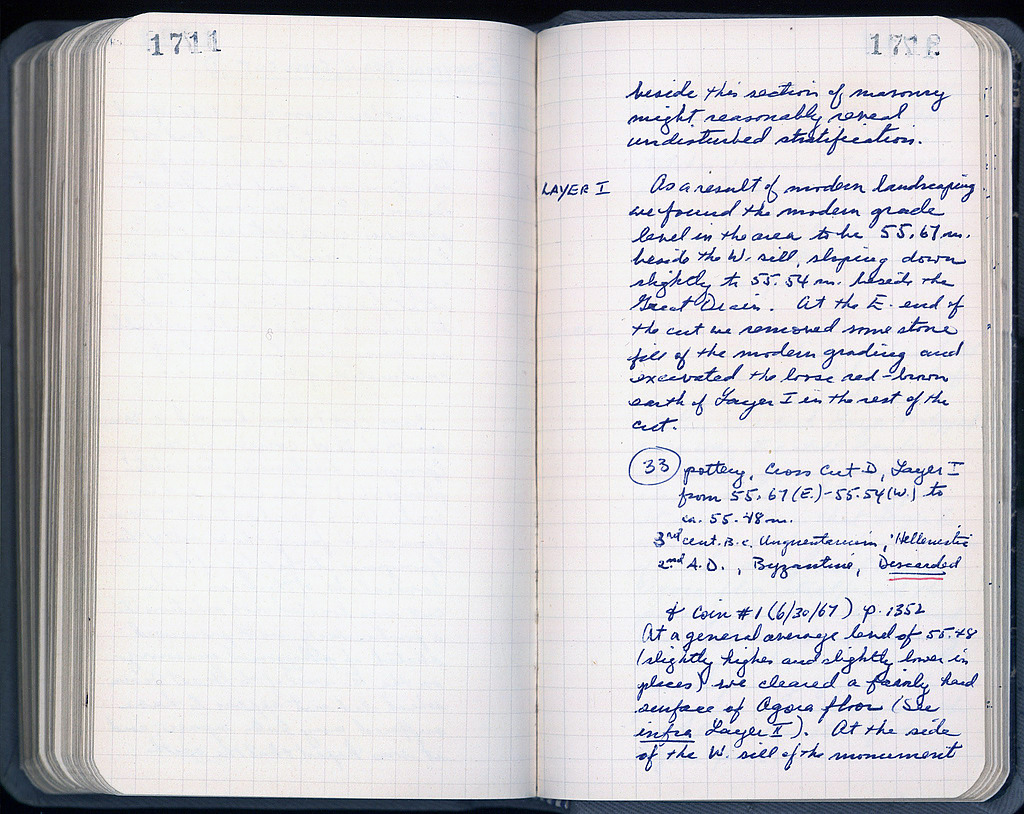 1711
1712
beside this section of masonry
might reasonably reveal
undisturbed stratification.
LAYER I As a result of modern landscaping
we found the modern grade
level in the area to be 55.67 m.
beside the W. sill, sloping down
slightly to 55.54 m. beside the
Great Drain. At the E. end of
the cut we removed some stone
fill of the modern grading and
excavated the loose red-brown
earth of Layer I in the rest of the
cut.
33 pottery, Cross Cut D, Layer I
from 55.67 (E.) - 55.54 (W.) to
ca. 55.48 m.
3rd cent. B.C. Unguentarium, Hellenistic
2nd A.D., Byzantine, Discarded
& Coin #1 (6/30/67) p. 1352
At a general average level of 55.48
(slightly higher and slightly lower in
places) we cleared a fairly hard
surface of Agora floor (See
infra Layer II). At the side
of the W. sill of the monument